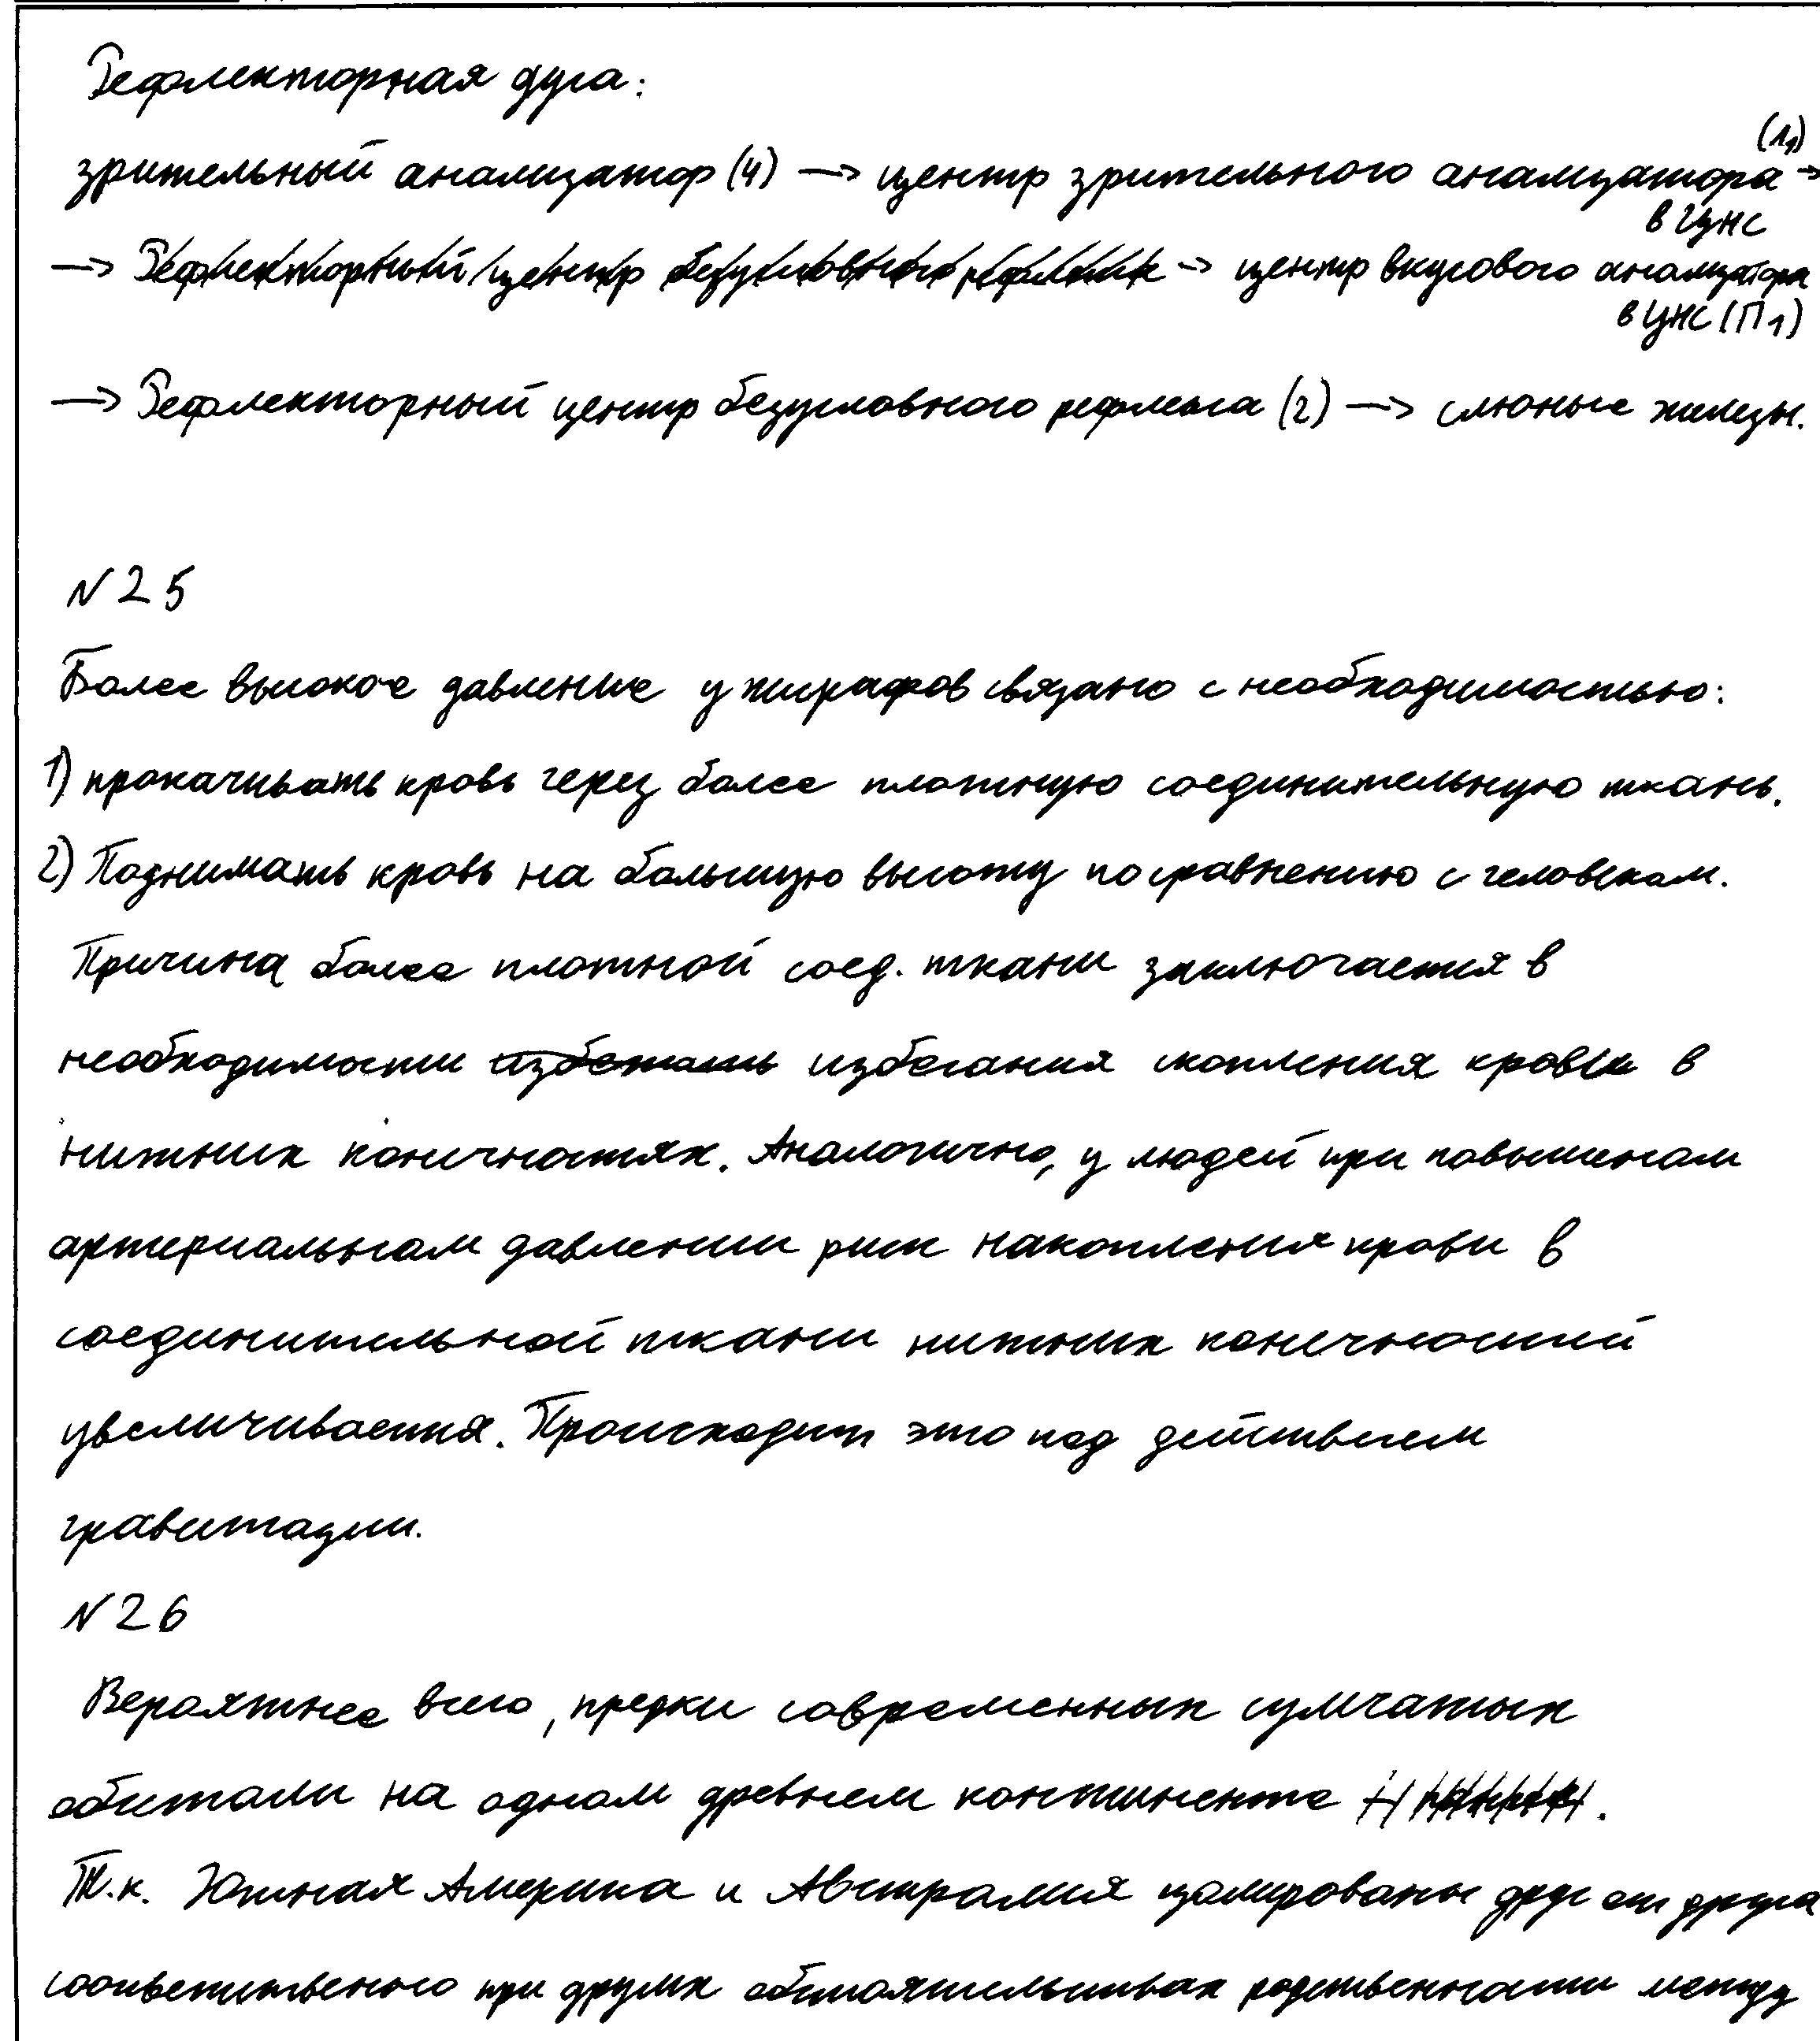 Рефлекторная дуга:
(Л1)
зрительный анализатор (4) → центр зрительного анализатора →
в ЦНС
→ Рефлекторный центр безусловного рефлекса → центр вкусового анализатора
в ЦНС (П1)
→ Рефлекторный центр безусловного рефлекса (2) → слюные железы.
№25
Более высокое давление у жирафов связано с необходимостью:
1) прокачивать кровь через более плотную соединительную ткань.
2) Поднимать кровь на большую высоту по сравнению с человеком.
Причина более плотной соед. ткани заключается в
необходимости избежать избегания скопления крови в
нижних конечностях. Аналогично, у людей при повышеном
артериальном давлении риск накопления крови в
соединительной ткани нижних конечностей
увеличивается. Происходит это под действием
гравитации.
№26
Вероятнее всего, предки современных сумчатых
обитали на одном древнем континенте
Т.к. Южная Америка и Австралия изолированы друг от друга
соответственно при других обстоятельствах родственности между